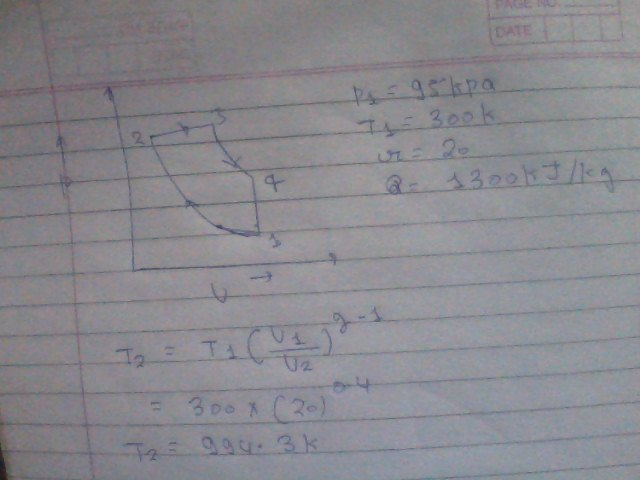 PAGE NO
DATE
P1 = 95 kpa
T1 = 300 k
r = 20
Q = 1300 kJ/kg
2
3
4
1
P
V
T2 = T1 (V1/V2)^γ-1
= 300 x (20)^0.4
T2 = 994.3k